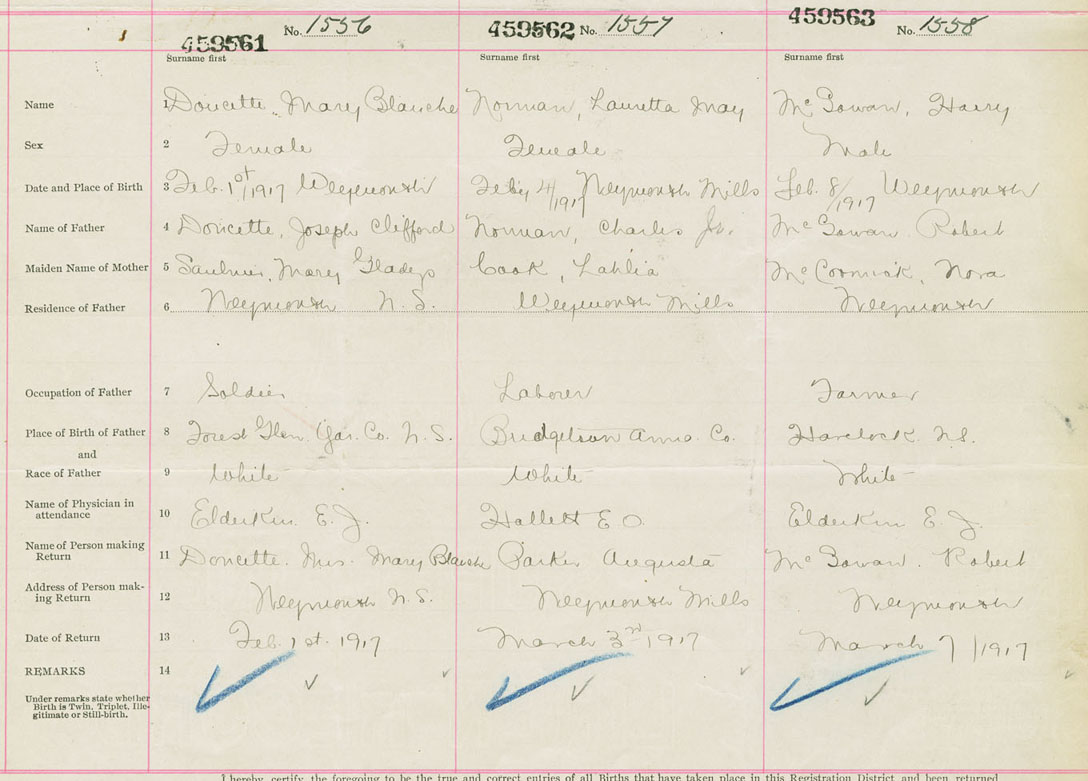 459561 No. 1556 459562 No. 1557 459563 No. 1558
Surname first Surname first Surname first
Name 1 Doucette, Mary Blanche Norman, Lauretta May McGowan, Harry
Sex 2 Female Female Male
Date and Place of Birth 3 Feb. 1st/1917 Weymouth Feby 4/1917 Weymouth Mills Feb. 8/1917 Weymouth
Name of Father 4 Doucette, Joseph Clifford Norman, Charles Jr. McGowan Robert
Maiden Name of Mother 5 Saulnier, Mary Gladys Cook, Lahlia McCormick, Nora
Residence of Father 6 Weymouth N.S. Weymouth Mills Weymouth
Occupation of Father 7 Soldier Laborer Farmer
Place of Birth of Father 8 Forest Glen. Yar. Co. N.S. Bridgetown Anna. Co. Havelock N.S.
and
Race of Father 9 White White White
Name of Physician in
attendance 10 Elderkin E. J. Hallett E O. Elderkin E. J.
Name of Person making
Return 11 Doucette. Mrs. Mary Blanche Parker Augusta McGowan. Robert
Address of Person mak-
ing Return 12 Weymouth N.S. Weymouth Mills Weymouth
Date of Return 13 Feb. 1st. 1917 March 3rd 1917 March 7/1917
REMARKS 14
Under remarks state whether
Birth is Twin, Triplet, Ille-
gitimate or Still-birth.
I hereby certify the foregoing to be the true and correct entries of all Births that have taken place in this Registration District and been returned